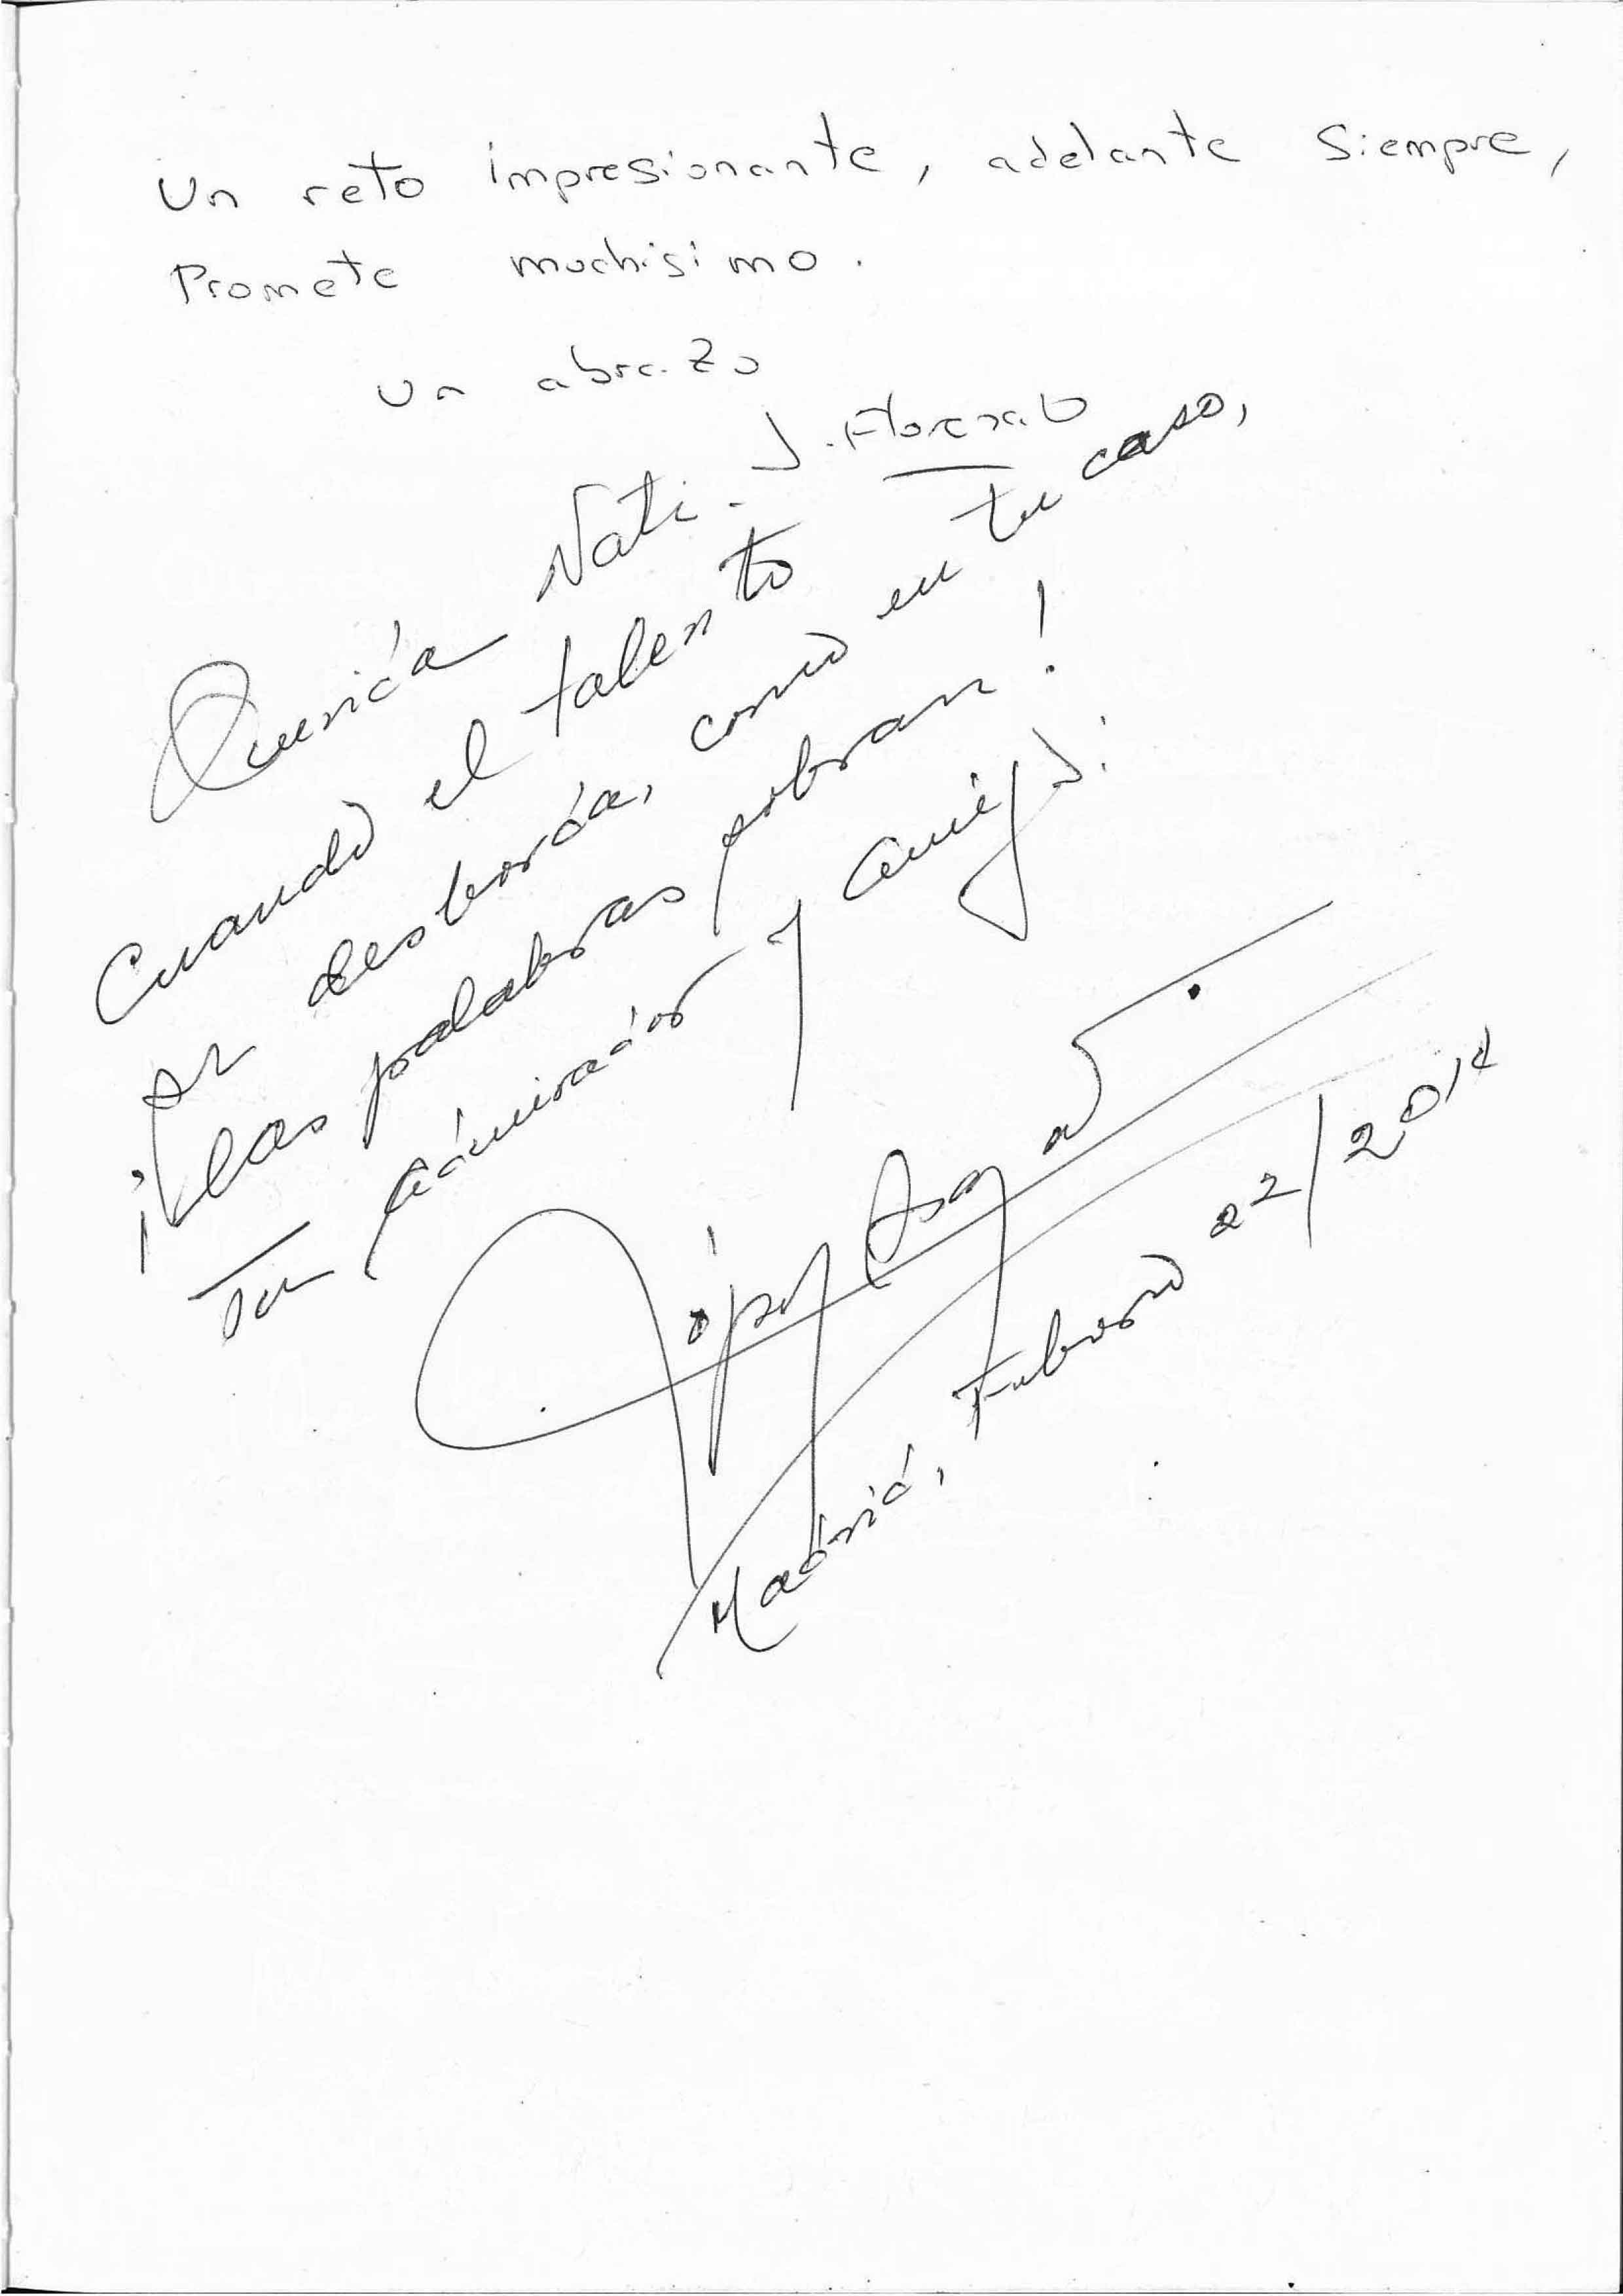 Un reto impresionante, adelante siempre,
Promete muchisimo.
Un abrazo
J.
Querida Nati.
Cuando el talento
se desborda, como en tu caso,
¡las palabras sobran!
Tu admirador y amigo:
López
Madrid, Febrero 22/2014